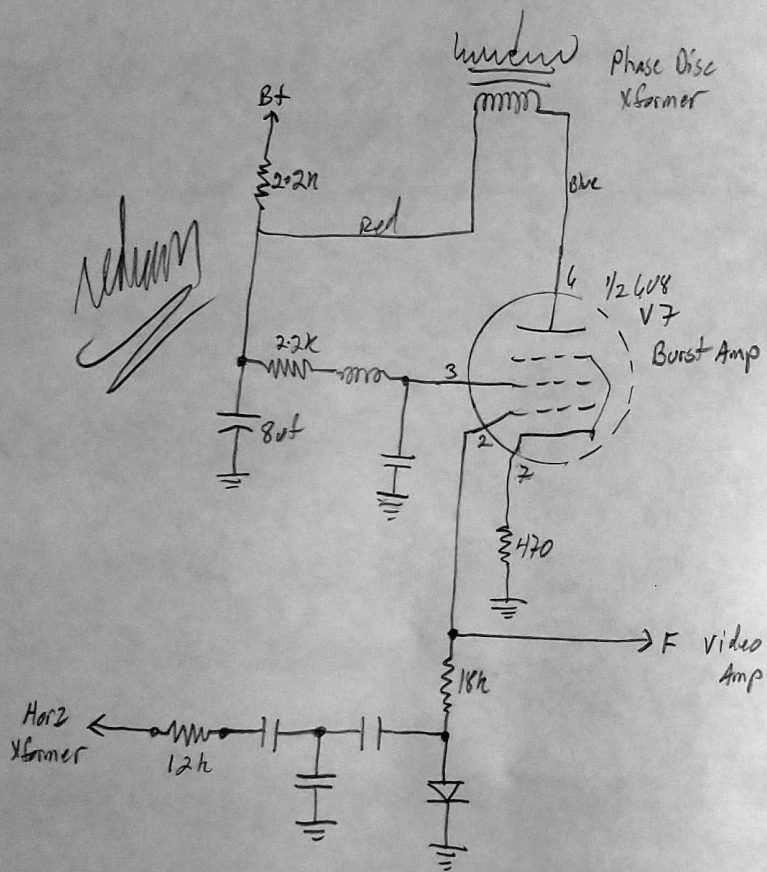 Phase Disc
Xformer
B+
2.2K
Red
Blue
6
1/2 6U8
V7
Burst Amp
2.2K
3
8uf
2
7
470
F Video
Amp
18K
Horz
Xformer
12K